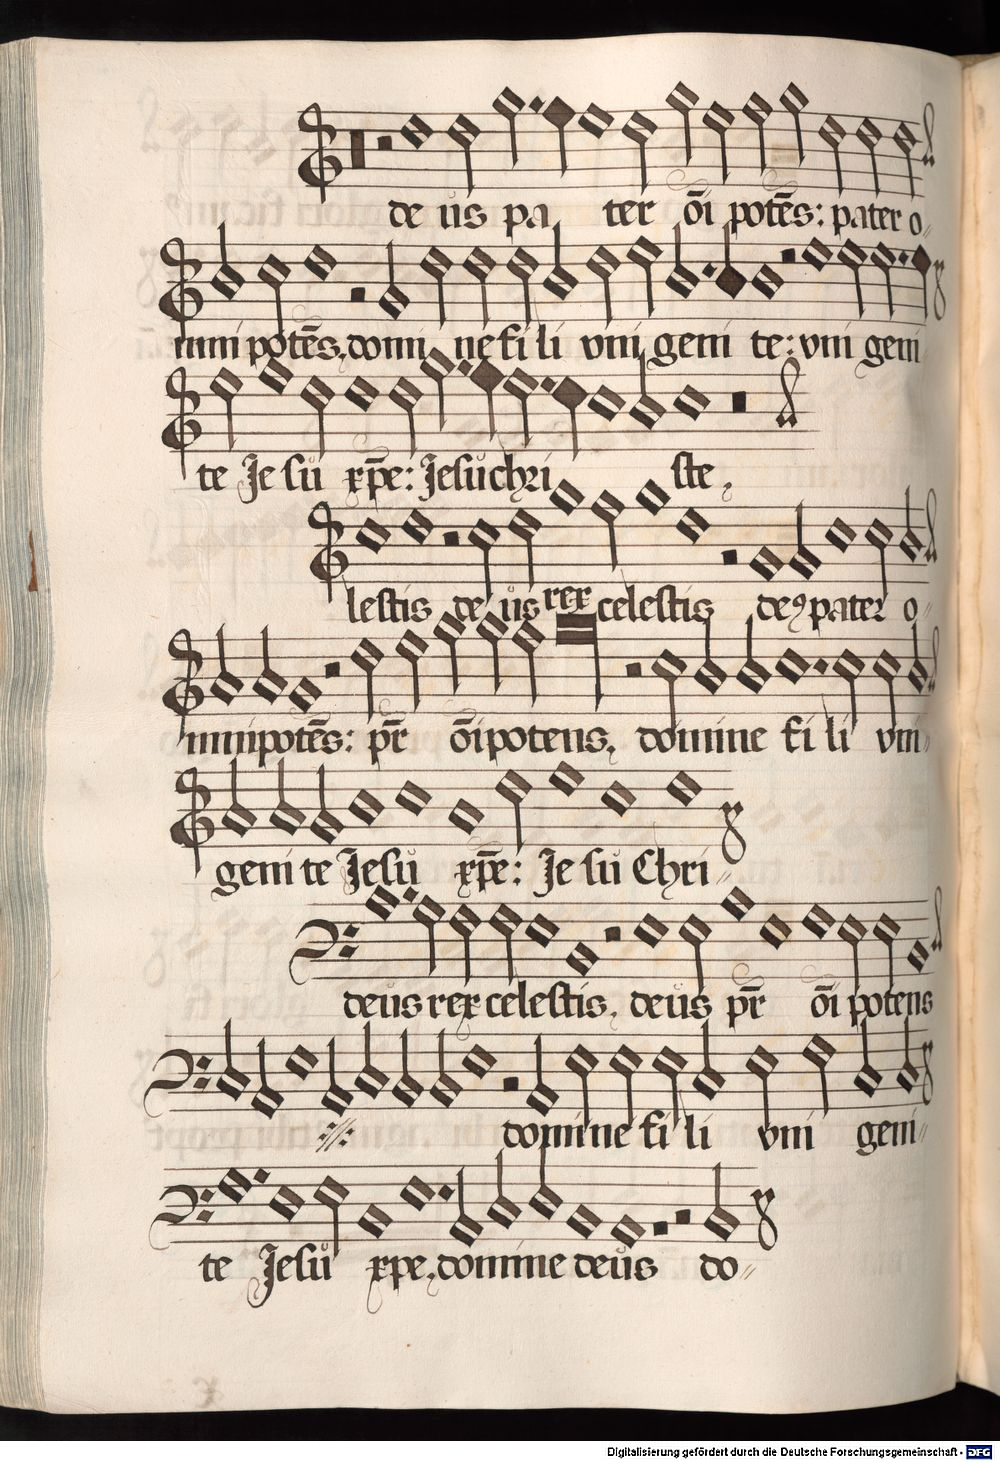 de us pa ter o̅i pote̅s: pater o
mni pote̅s, domi ne fi li vni geni te: vni geni
te Je su xp̅e: Jesu chri ste,
lestis de us rex celestis deꝰ pater o
mnipote̅s: p̅r o̅ipotens, domine fi li vni
geni te Jesu xp̅e: Je su Chri
deus rex celestis, deus p̅r o̅i potens
domine fi li vni geni
te Jesu xpe, domine deus do
Digitalisierung gefördert durch die Deutsche Forschungsgemeinschaft - DFG